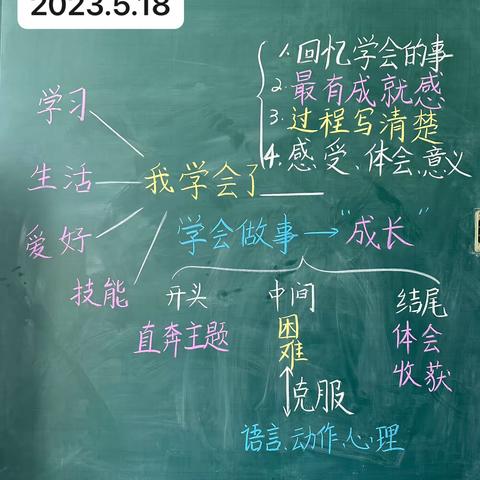 2023.5.18
1.回忆学会的事
2.最有成就感
3.过程写清楚
4.感受、体会、意义
学习
生活
爱好
技能
我学会了____
学会做事→"成长"
开头
直奔主题
中间
困难
↕克服
语言、动作、心理
结尾
体会
收获